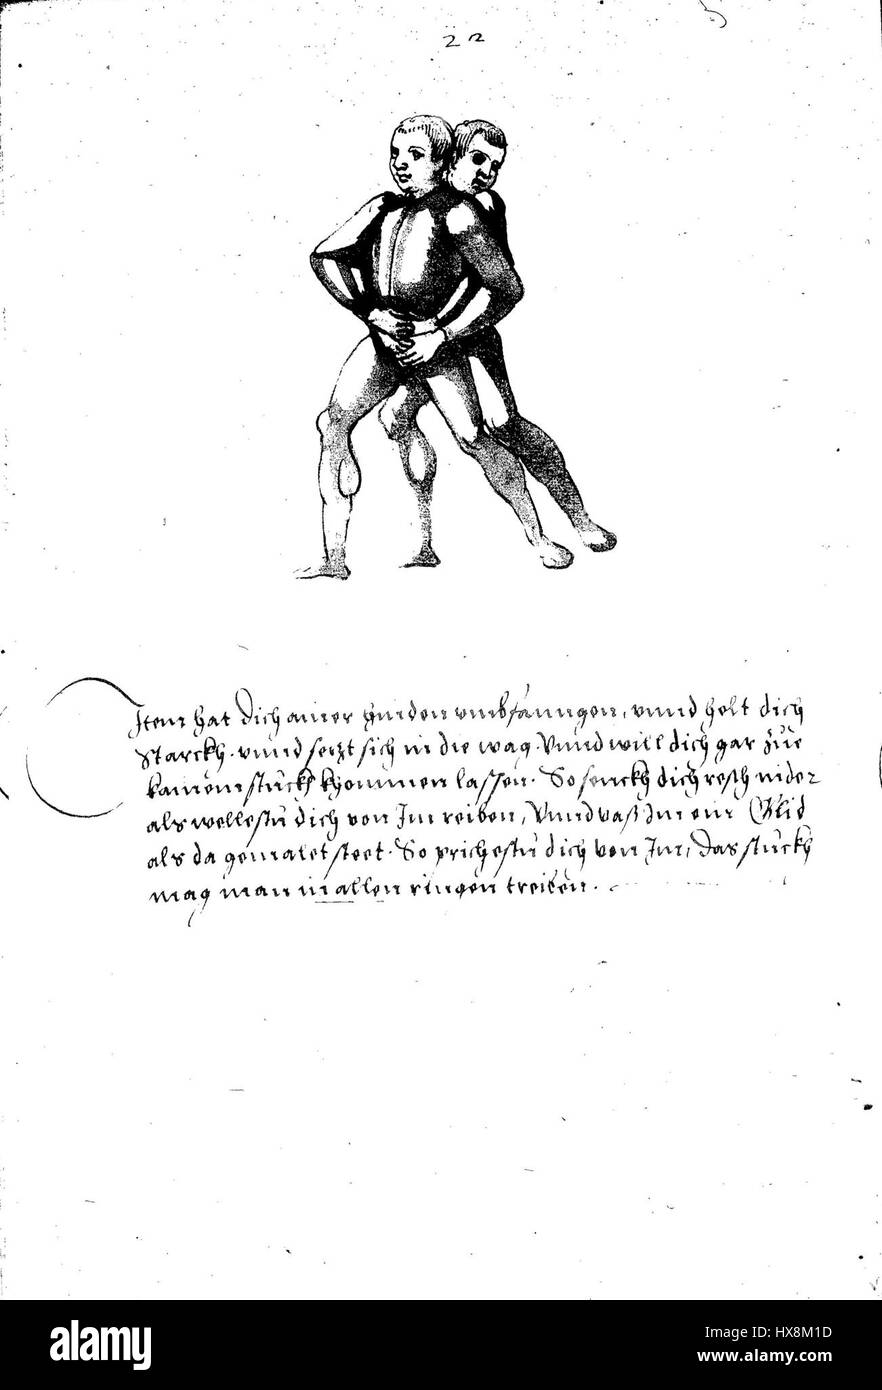 22
Item hat dich ainer hinden umbfanngen, unnd helt dich
starckh. unnd setzt sich in die wag. Vnnd will dich gar zue
kainem stuckh khommen lassen. So senckh dich resch nider
als wellestu dich von Im reiben, Vnnd vaß Im ein Glid
als da gemalet steet. So prichestu dich von Im, Das stuckh
mag man in allen ringen treiben.
alamy
Image ID: HX8M1D
www.alamy.com